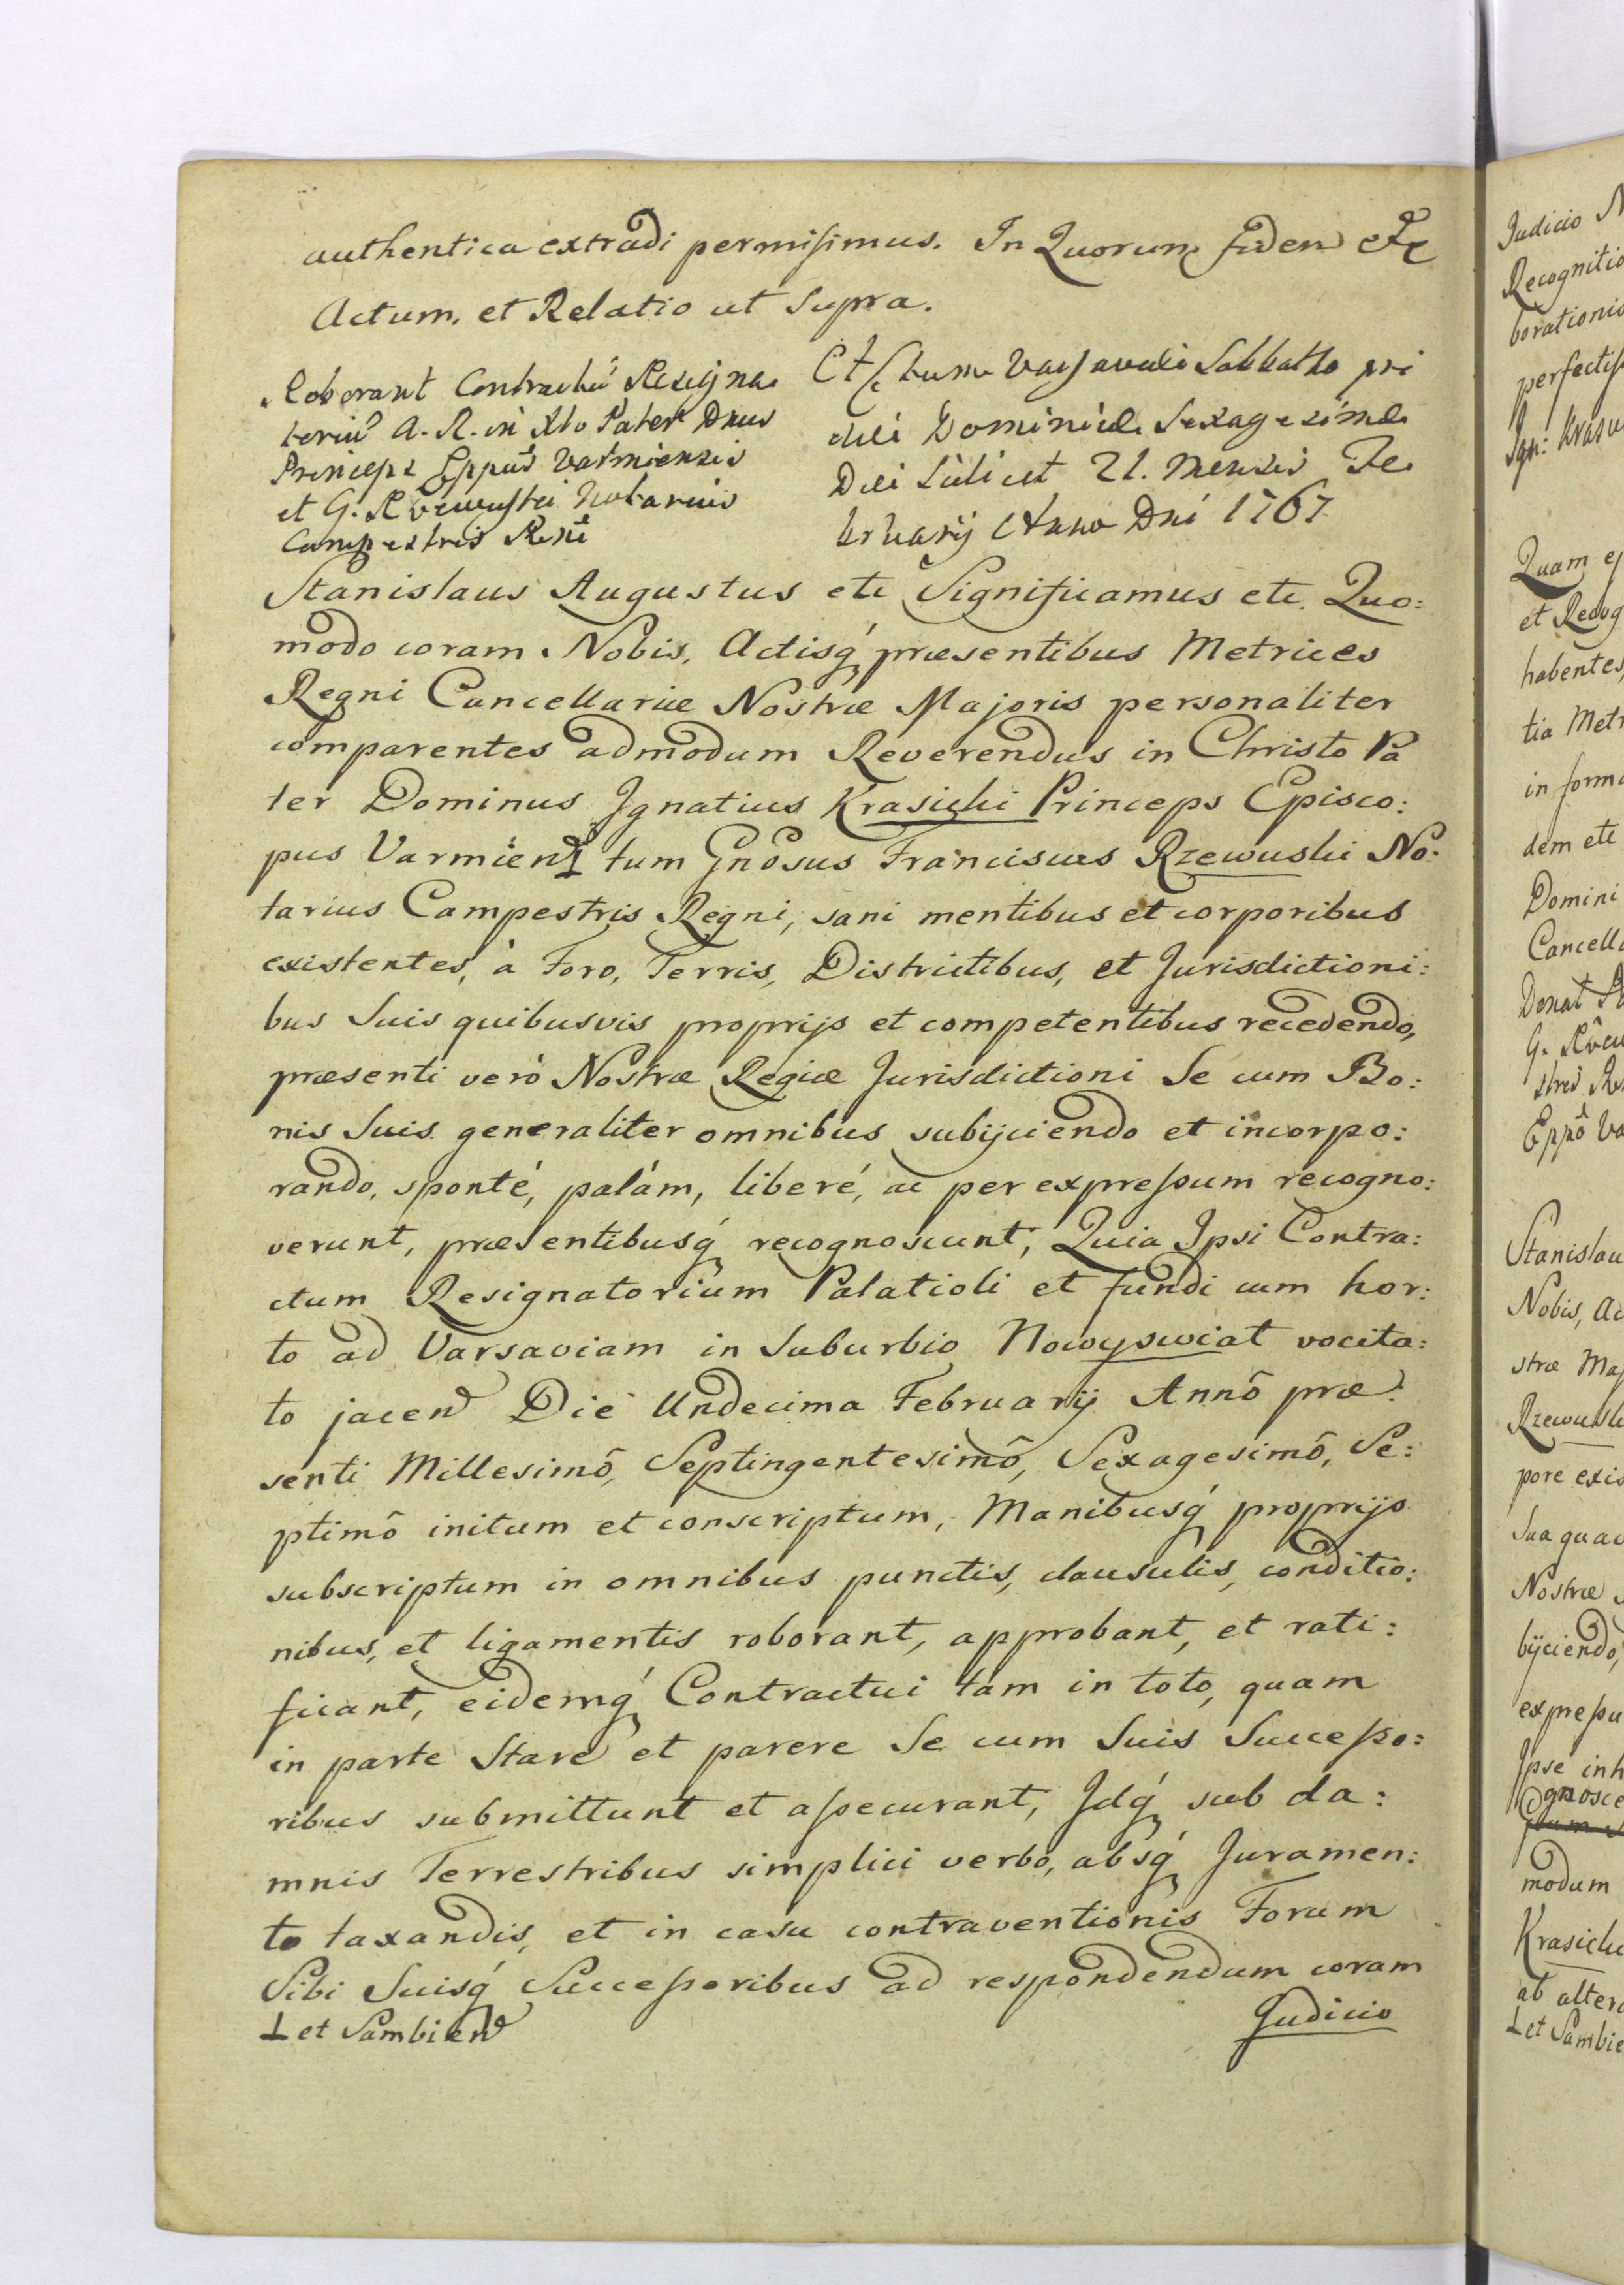 authentica extradi permisimus. In Quorum fidem etc
Actum, et Relatio ut Supra.
Roborant Contractũ Resigna
toriũ A. R. in Xto Pater Dnus
Princeps Eppus Varmiensis
et G. Rzewuski Notarius
Campestris Regni
Actum Varsaviæ Sabbatho pri
diei Dominicæ Sexagesimæ
Diei Scilicet 21. Mensis Fe
bruarij Anno Dni 1767
Stanislaus Augustus etc Significamus etc. Quo:
modo coram Nobis, Actisq́ præsentibus Metrices
Regni Cancellariæ Nostræ Majoris personaliter
comparentes admodum Reverendus in Christo Pa
ter Dominus Ignatius Krasicki Princeps Episco:
pus Varmien ⊥ tum Gnosus Franciscus Rzewuski No:
tarius Campestris Regni, sani mentibus et corporibus
existentes, à Foro, Terris, Districtibus, et Jurisdictioni:
bus Suis quibusvis proprijs et competentibus recedendo,
præsenti verò Nostræ Regiæ Jurisdictioni Se cum Bo:
nis Suis generaliter omnibus subijciendo et incorpo:
rando, sponté, palám, liberé, ac per expreſsum recogno:
verunt, præsentibusq́ recognoscunt, Quia Ipsi Contra:
ctum Resignatorium Palatioli et fundi cum hor:
to ad Varsaviam in Suburbio Nowyswiat vocita:
to jacen Die Undecima Februarij Annô præ:
senti Millesimô, Septingentesimô, Sexagesimô, Se:
ptimô initum et conscriptum, Manibusq́ proprijs
subscriptum in omnibus punctis, clausulis, conditio:
nibus, et ligamentis roborant, approbant, et rati:
ficant, eidemq́ Contractui tam in toto, quam
in parte Stare et parere Se cum Suis Succeſso:
ribus submittunt et aſsecurant, Idq́ sub da:
mnis Terrestribus simplici verbo, absq́ Juramen:
to taxandis, et in casu contraventionis Forum
Sibi Suisq́ Succeſsoribus ad respondendum coram
⊥ et Sambien
Judicio
Judicio N
Recognitio
borationis
perfectiſ
Ign: Krasic
Quam
et Recog
habentes,
tia Metr
in forma
dem etc
Domini
Cancella
Donat
G. Rzew
Eppo Va
Stanislau
Nobis, Ac
stræ Maj
Rzewusk
pore exis
Sua quac
Nostræ
bijciendo,
expreſsu
Ipse inh
gnosce
modum
Krasick
ab altera
⊥ et Sambie